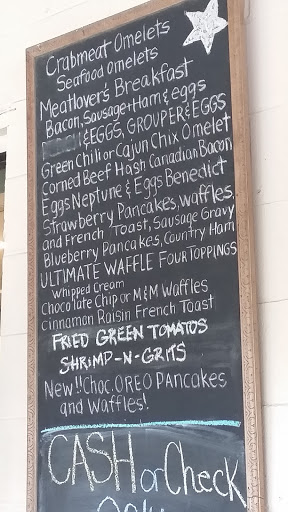 Crabmeat Omelets
Seafood Omelets
Meatlover's Breakfast
Bacon, Sausage + Ham & eggs
& EGGS, GROUPER & EGGS
Green Chili or Cajun Chix Omelet
Corned Beef Hash Canadian Bacon
Eggs Neptune & Eggs Benedict
Strawberry Pancakes, Waffles,
and French Toast, Sausage Gravy
Blueberry Pancakes, Country Ham
ULTIMATE WAFFLE FOUR TOPPINGS
Whipped Cream
Chocolate Chip or M&M Waffles
Cinnamon Raisin French Toast
FRIED GREEN TOMATOS
SHRIMP-N-GRITS
New!! Choc. OREO Pancakes
and Waffles!
CASH or Check
Only